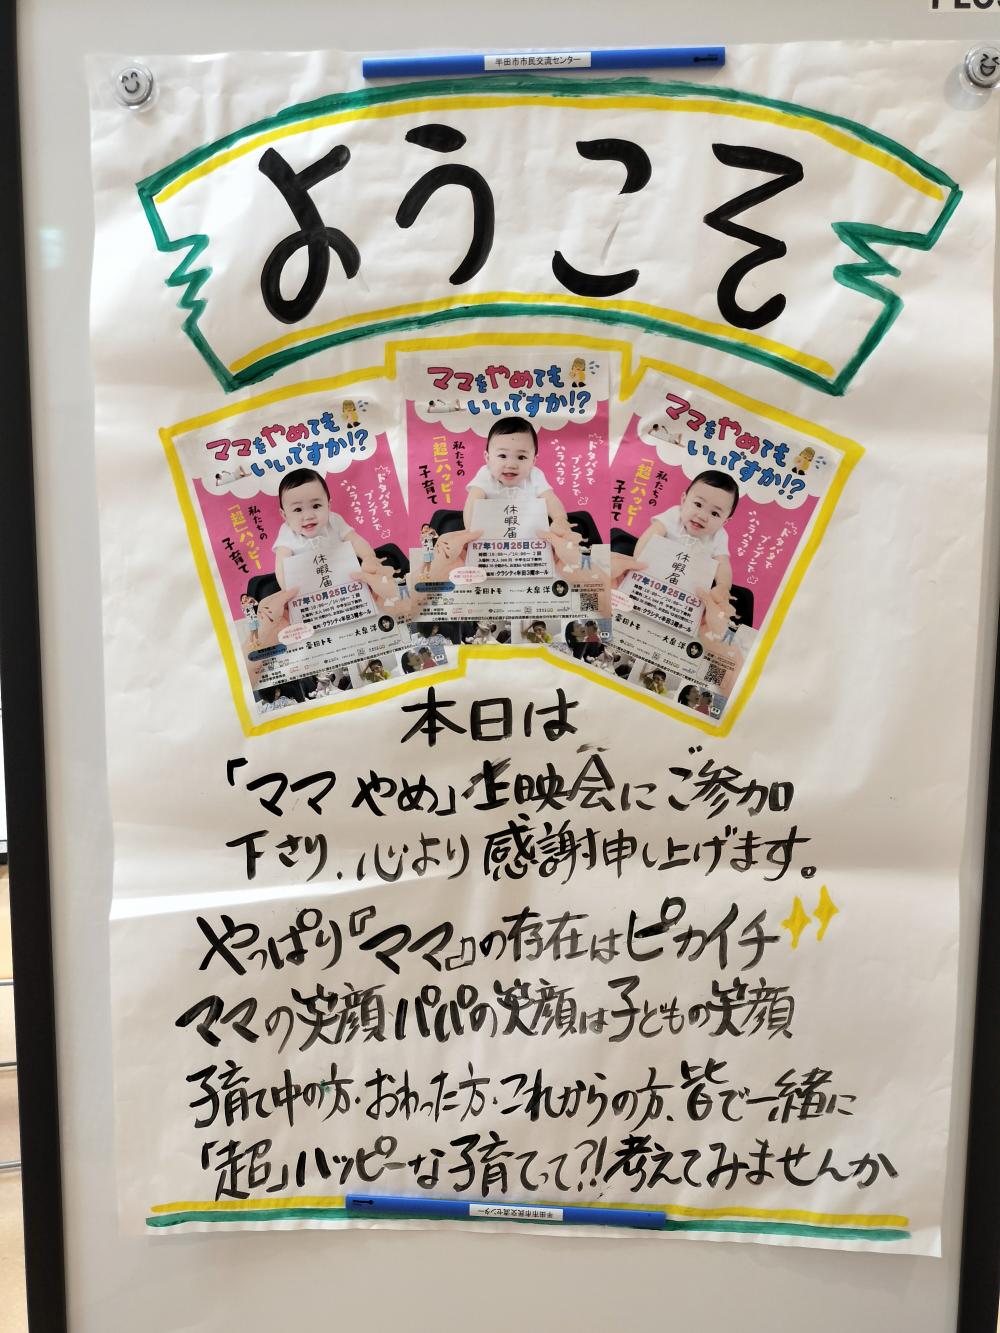 半田市市民交流センター
ようこそ
ママをやめても
いいですか!?
私たちの
「超」ハッピー
子育て
ドタバタで
プンプンで
ハラハラな
休暇届
R7年10月25日(土)
場所:クラシティ半田3階ホール
豪田トモ
大泉 洋
ママをやめても
いいですか!?
私たちの
「超」ハッピー
子育て
ドタバタで
プンプンで
ハラハラな
休暇届
R7年10月25日(土)
場所:クラシティ半田3階ホール
豪田トモ
大泉 洋
ママをやめても
いいですか!?
私たちの
「超」ハッピー
子育て
ドタバタで
プンプンで
ハラハラな
休暇届
R7年10月25日(土)
場所:クラシティ半田3階ホール
豪田トモ
大泉 洋
本日は
「ママ やめ」上映会にご参加
下さり、心より感謝申し上げます。
やっぱり『ママ』の存在はピカイチ
ママの笑顔パパの笑顔は子どもの笑顔
子育て中の方・おわった方・これからの方、皆で一緒に
「超」ハッピーな子育てって?!考えてみませんか
半田市市民交流センター